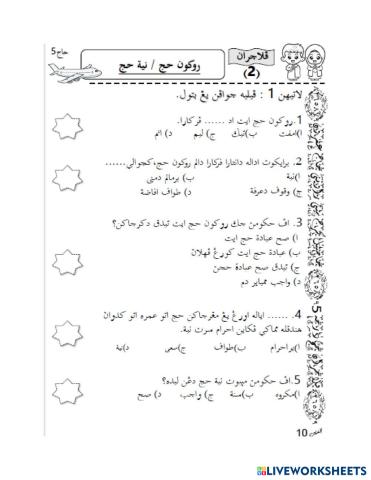 حاج 5
ڤلاجرن
(2)
روكون حج / نية حج
لاتيهن 1 : ڤيليه جواڤن يڠ بتول.
1. روكون حج ايت اد ...... ڤركارا.
ا) امڤت ب) تيݢ ج) ليم د) انم
2. برايكوت اداله دانتارا ڤركارا دالم روكون حج، كچوالي......
ا) نية ب) برمالم دمنى
ج) وقوف دعرفة د) طواف افاضة
3. اڤ حكومن جك روكون حج ايت تيدق دكرجاكن؟
ا) صح عبادة حج ايت
ب) عبادة حج ايت كورڠ ڤهلان
ج) تيدق صح عبادة حجن
د) واجب ممباير دم
4. ...... اياله اورڠ يڠ مڠرجاكن حج اتو عمره اتو كدوان
هندقله مماكي ڤكاين احرام سرت نية.
ا) براحرام ب) طواف ج) سعي د) نية
5. اڤ حكومن مڽبوت نية حج دڠن ليده؟
ا) مكروه ب) سنة ج) واجب د) صح
10
LIVEWORKSHEETS